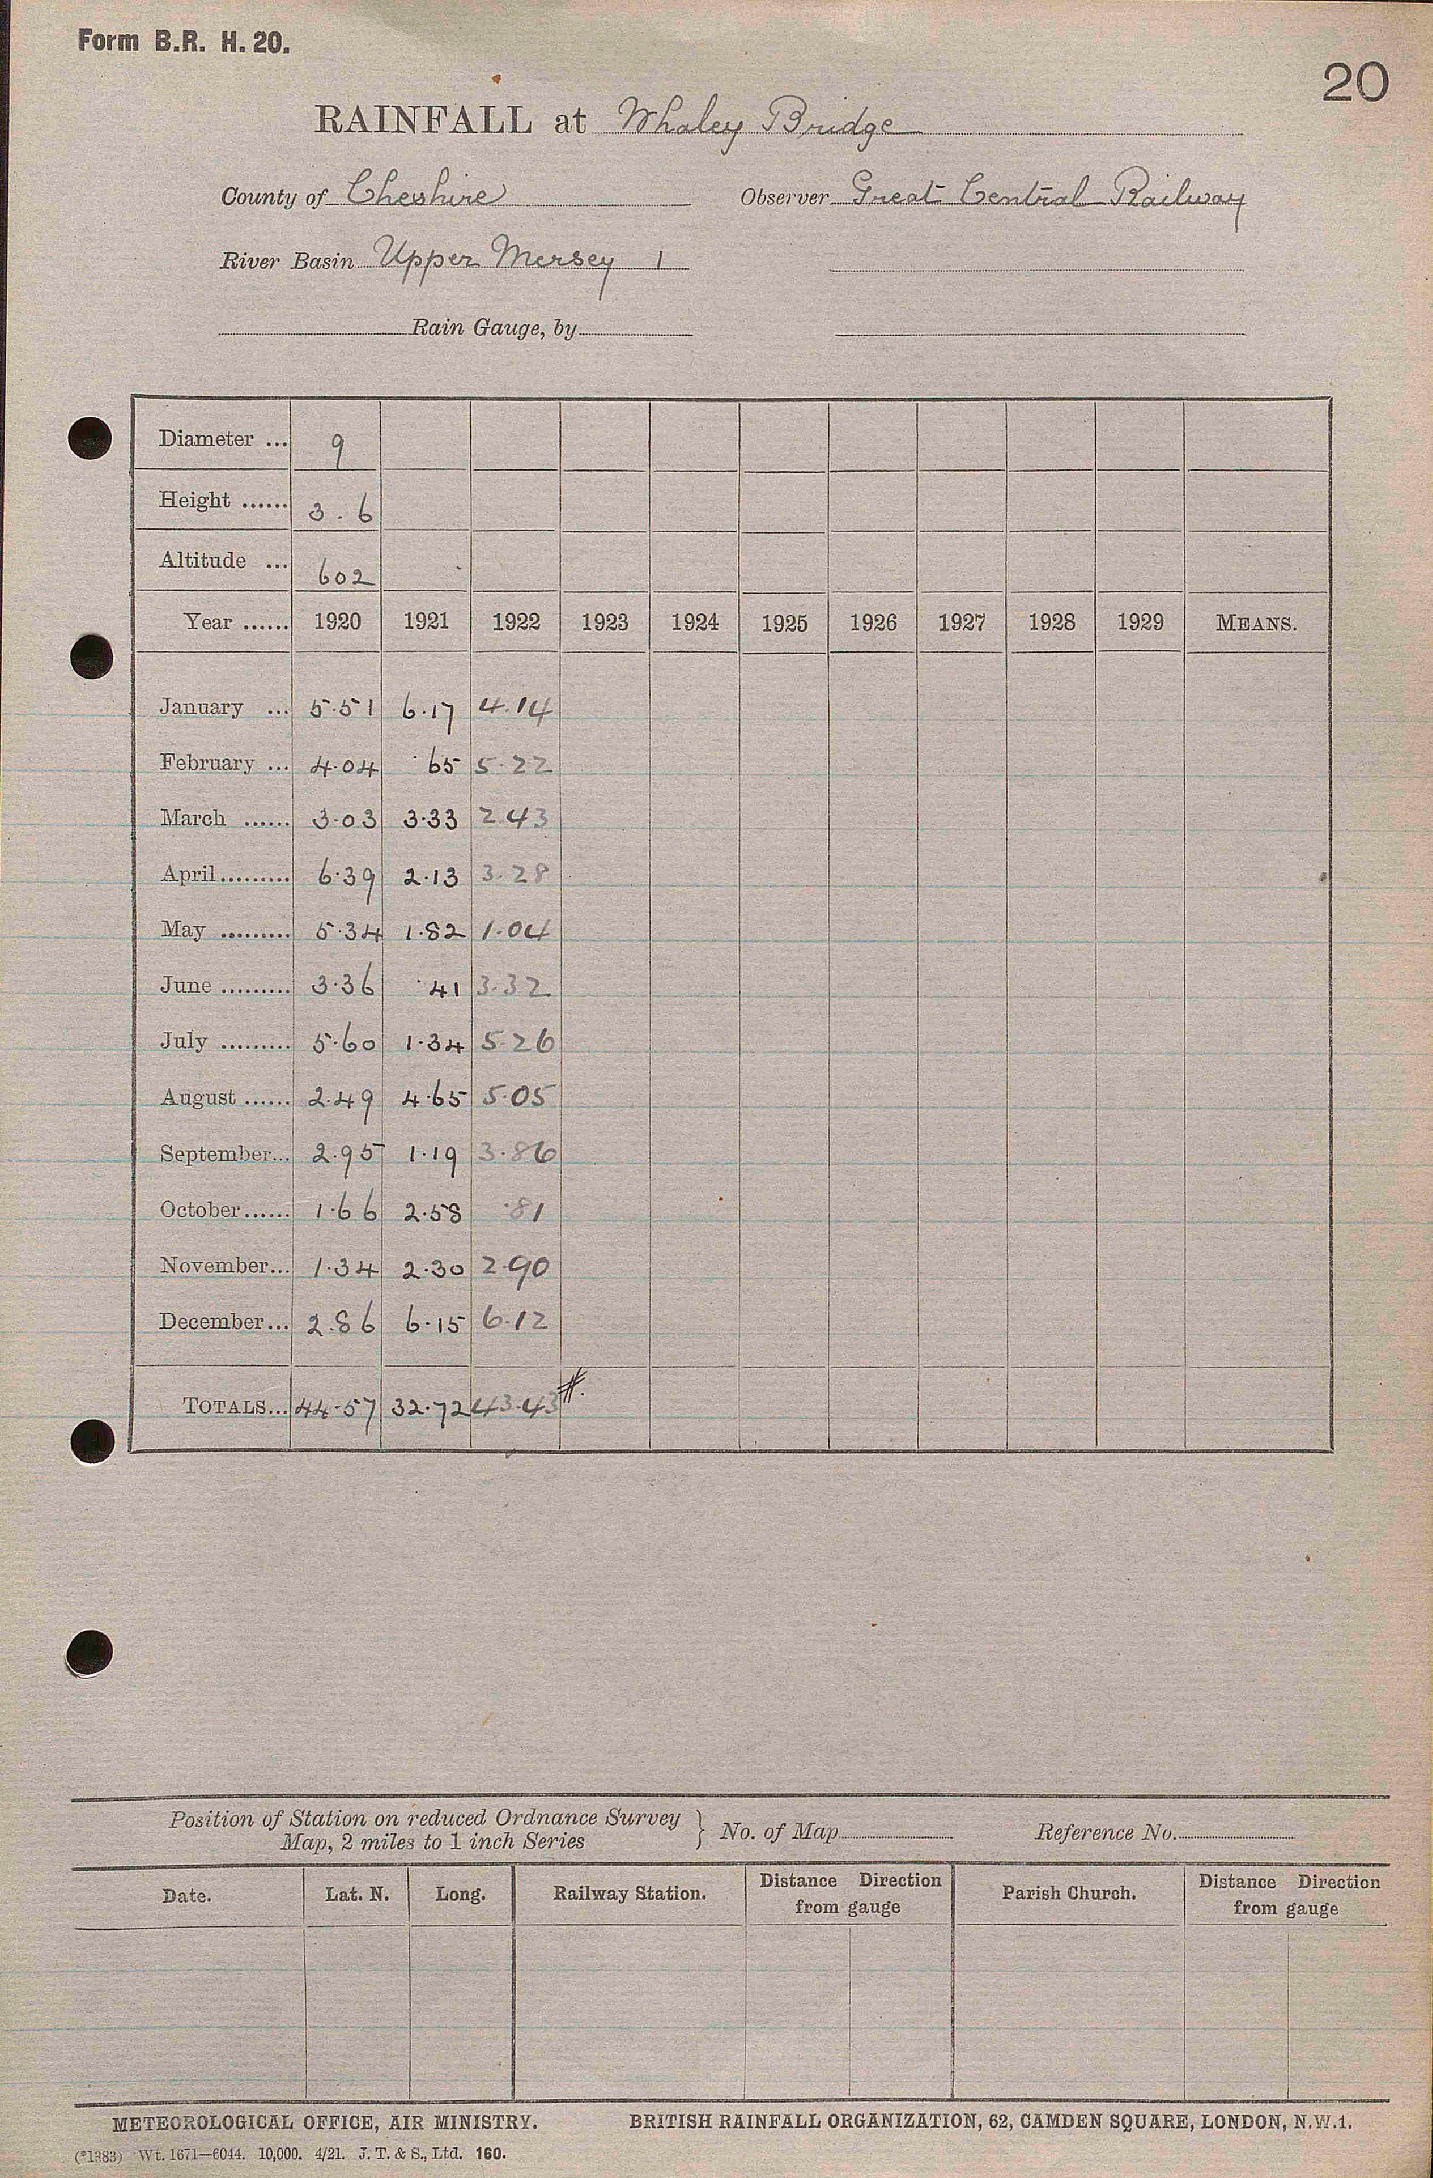 Form B.R. H. 20.
20
RAINFALL at Whaley Bridge
County of Cheshire Observer Great Central Railway
River Basin Upper Mersey 1
Rain Gauge, by
Diameter ... 9
Height ...... 3.6
Altitude ... 602
Year ...... 1920 1921 1922 1923 1924 1925 1926 1927 1928 1929 MEANS.
January ... 5.51 6.17 4.14
February ... 4.04 .65 5.22
March ...... 3.03 3.33 2.43
April......... 6.39 2.13 3.28
May ......... 5.34 1.82 1.04
June ......... 3.36 .41 3.32
July ......... 5.60 1.34 5.26
August ...... 2.49 4.65 5.05
September... 2.95 1.19 3.86
October...... 1.66 2.58 .81
November... 1.34 2.30 2.90
December... 2.86 6.15 6.12
TOTALS... 44.57 32.72 43.43 #.
Position of Station on reduced Ordnance Survey
Map, 2 miles to 1 inch Series } No. of Map Reference No.
Date. Lat. N. Long. Railway Station. Distance Direction from gauge Parish Church. Distance Direction from gauge
METEOROLOGICAL OFFICE, AIR MINISTRY. BRITISH RAINFALL ORGANIZATION, 62, CAMDEN SQUARE, LONDON, N.W.1.
(*1383) Wt. 1671—6044. 10,000. 4/21. J. T. & S., Ltd. 160.